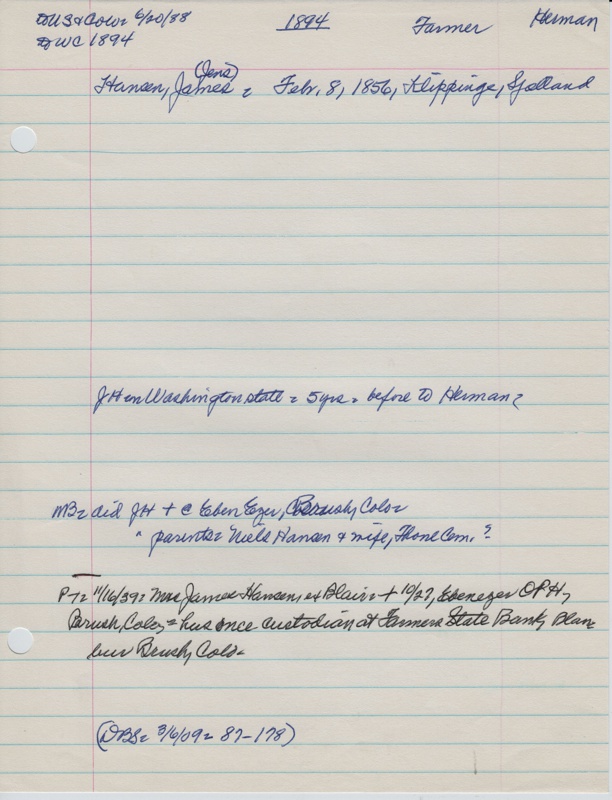 DUS & Colo = 6/20/88 1894 Farmer Herman
DWC 1894
(Jens)
Hansen, James = Febr. 8, 1856, Klippinge, Sjelland
JH in Washington state = 5 yrs = before to Herman?
MB = did JH + c Eben Ezer, Brush, Colo =
" parents = Niels Hansen & wife, Thone Cem. ?
PT = 11/16/39 = Mrs James Hansen, ex Blair = + 10/27, Ebenezer OPH,
Brush, Colo, = hus once custodian at Farmers State Bank, Blair
bur Brush, Colo =
(DBS = 3/6/09 = 87-178)